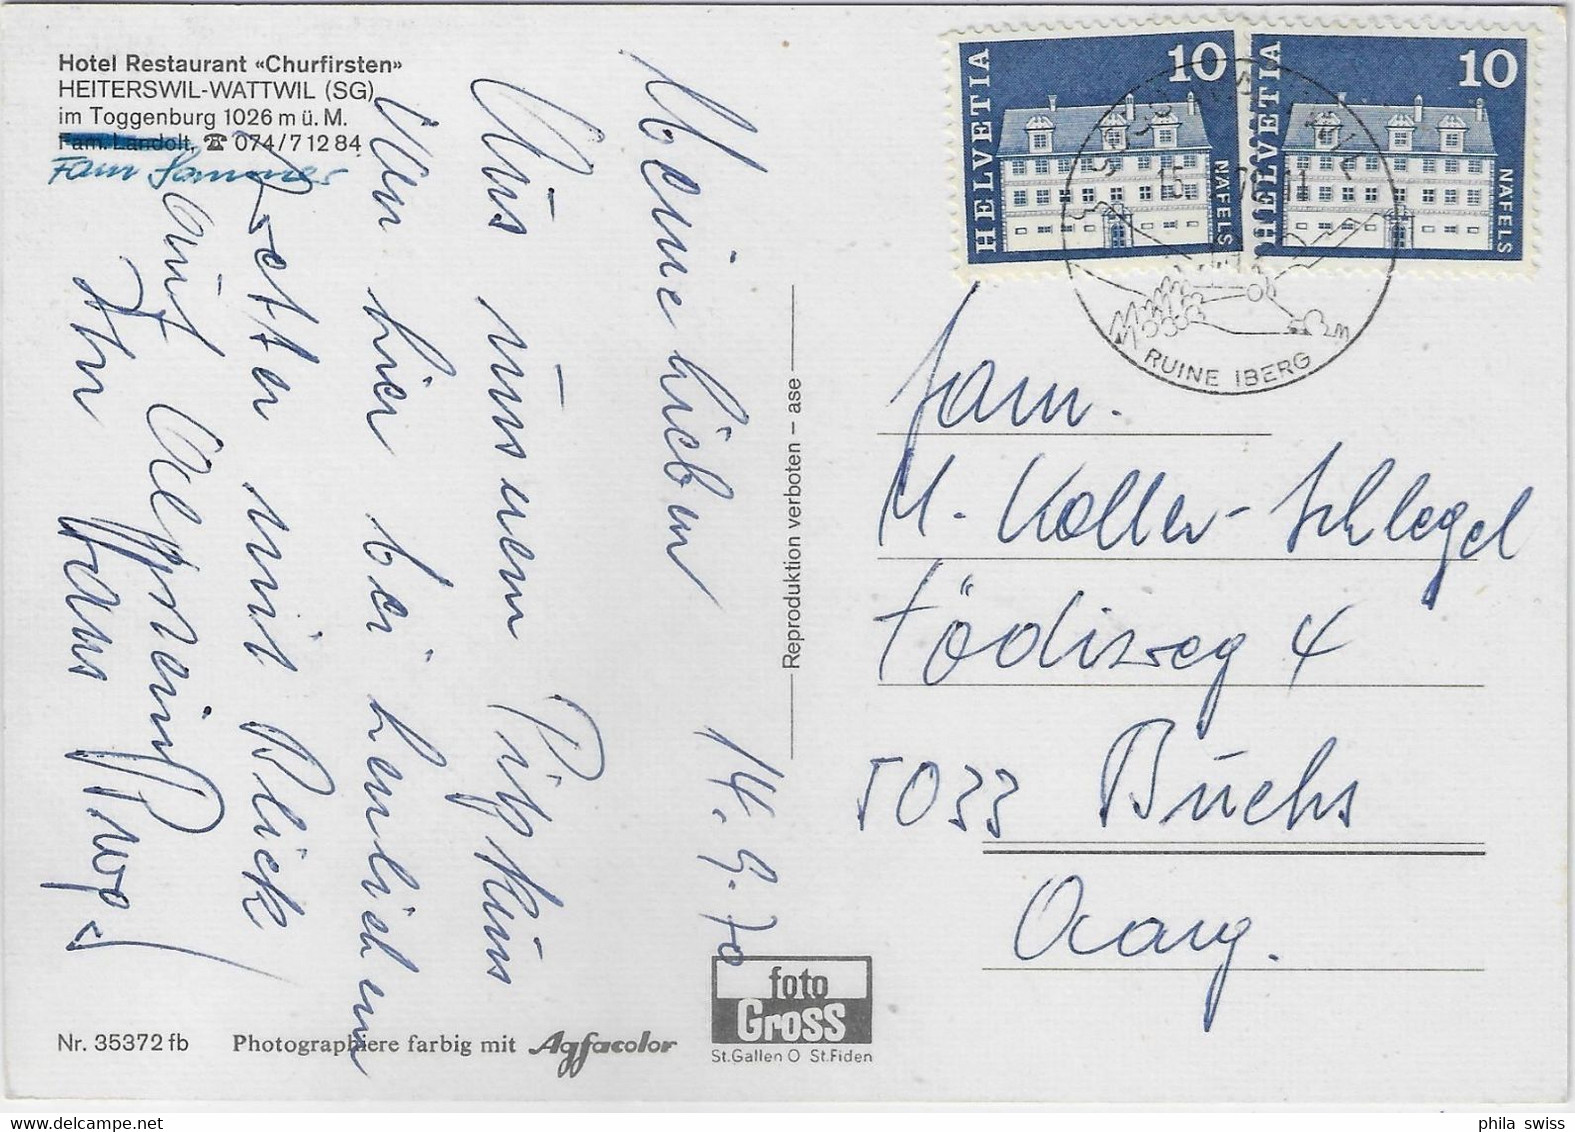 Hotel Restaurant «Churfirsten»
HEITERSWIL-WATTWIL (SG)
im Toggenburg 1026 m ü. M.
Fam. Landolt, ☎ 074/7 12 84
Fam Sommer
14. 9. 70
Meine Lieben
Aus unserem
Uen hier bei herrlichem
Wetter mit Blick
Ihr Hans
Reproduktion verboten – ase
HELVETIA 10 NÄFELS
HELVETIA 10 NÄFELS
9630 WATTWIL
15.
RUINE IBERG
Fam.
M. Koller-Schlegel
Tödiweg 4
5033 Buchs
Aarg.
foto
Gross
St.Gallen O St.Fiden
Nr. 35372 fb Photographiere farbig mit Agfacolor
phila swiss